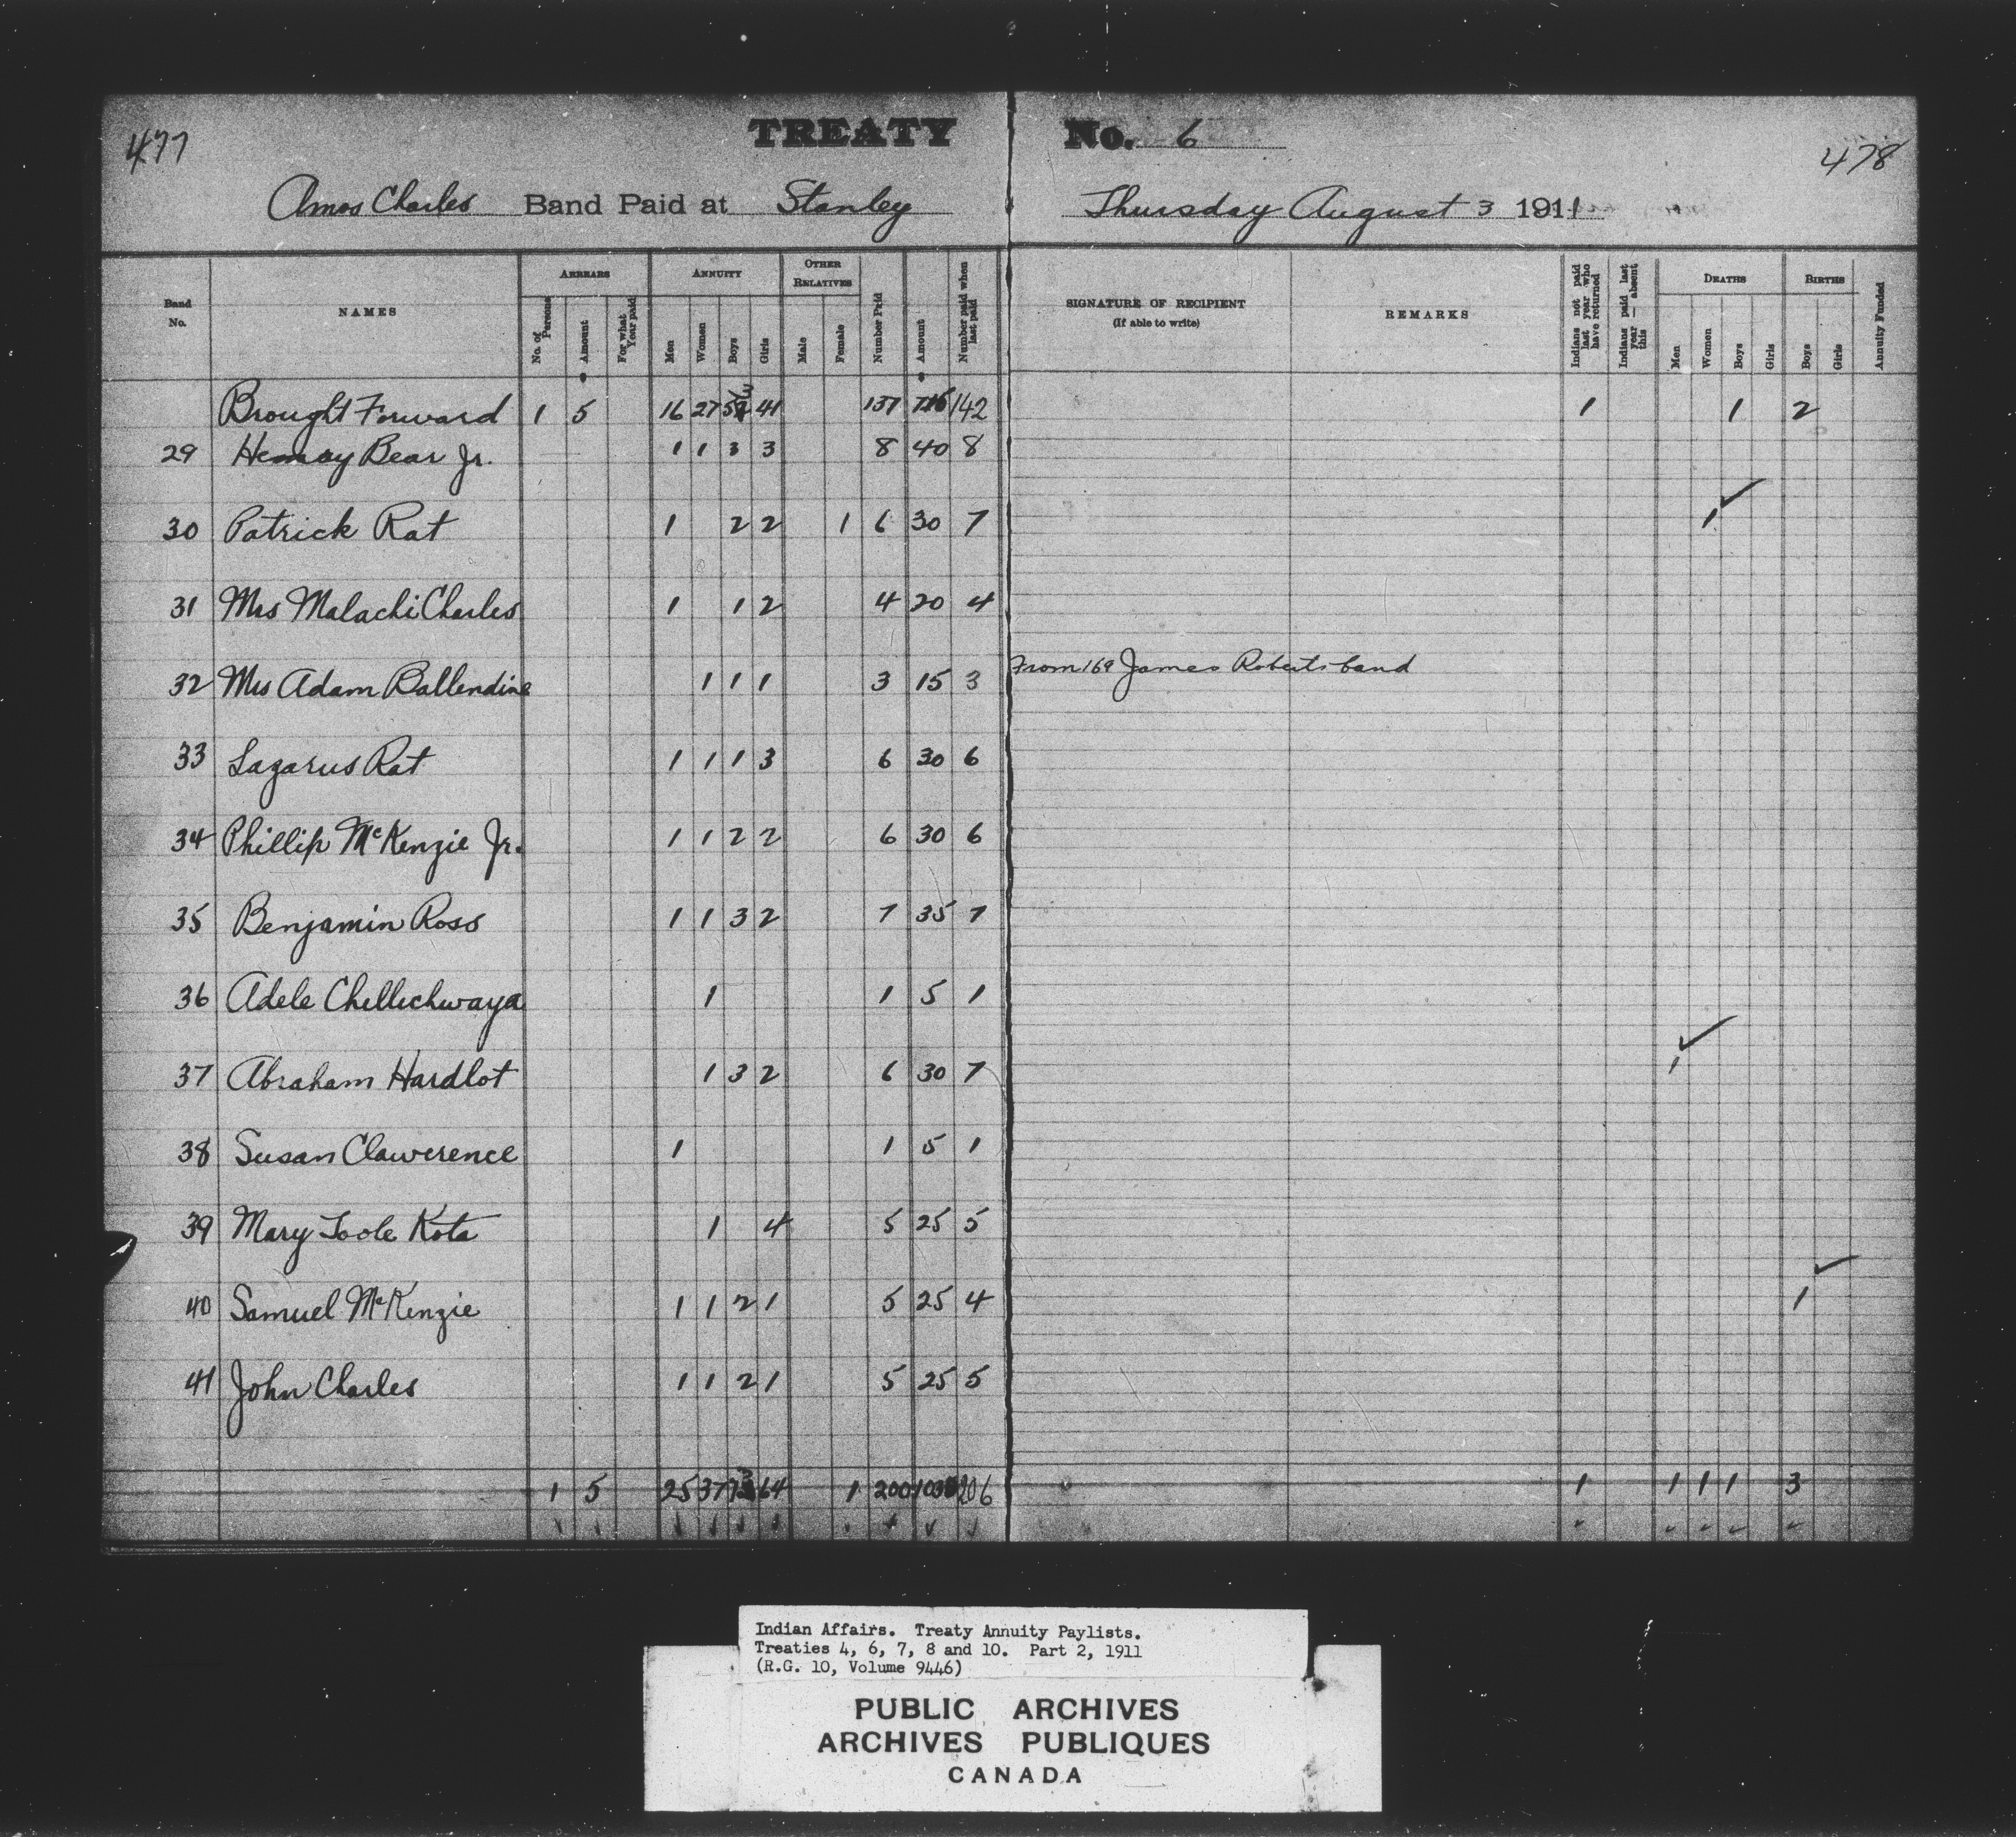 477
TREATY No. 6
478
Amos Charles Band Paid at Stanley Thursday August 3 1911
Band No.
NAMES
ARREARS
No. of Persons
Amount
For what Year paid
ANNUITY
Men
Women
Boys
Girls
OTHER RELATIVES
Male
Female
Number Paid
Amount
Number paid when last paid
SIGNATURE OF RECIPIENT
(If able to write)
REMARKS
Indians not paid last year who have returned
Indians paid last year — absent this
DEATHS
Men
Women
Boys
Girls
BIRTHS
Boys
Girls
Annuity Funded
Brought Forward 1 5 16 27 41 137 142 1 1 2
29 Henry Bear Jr. 1 1 3 3 8 40 8
30 Patrick Rat 1 2 2 1 6 30 7 1
31 Mrs Malachi Charles 1 1 2 4 20 4
32 Mrs Adam Ballendine 1 1 1 3 15 3 From 169 James Roberts band
33 Lazarus Rat 1 1 1 3 6 30 6
34 Phillip McKenzie Jr. 1 1 2 2 6 30 6
35 Benjamin Ross 1 1 3 2 7 35 7
36 Adele Chellichwaya 1 1 5 1
37 Abraham Hardlot 1 3 2 6 30 7 1
38 Susan Clawerence 1 1 5 1
39 Mary Toole Kota 1 4 5 25 5
40 Samuel McKenzie 1 1 2 1 5 25 4 1
41 John Charles 1 1 2 1 5 25 5
1 5 25 37 64 1 200 206 1 1 1 1 3
Indian Affairs. Treaty Annuity Paylists.
Treaties 4, 6, 7, 8 and 10. Part 2, 1911
(R.G. 10, Volume 9446)
PUBLIC ARCHIVES
ARCHIVES PUBLIQUES
CANADA